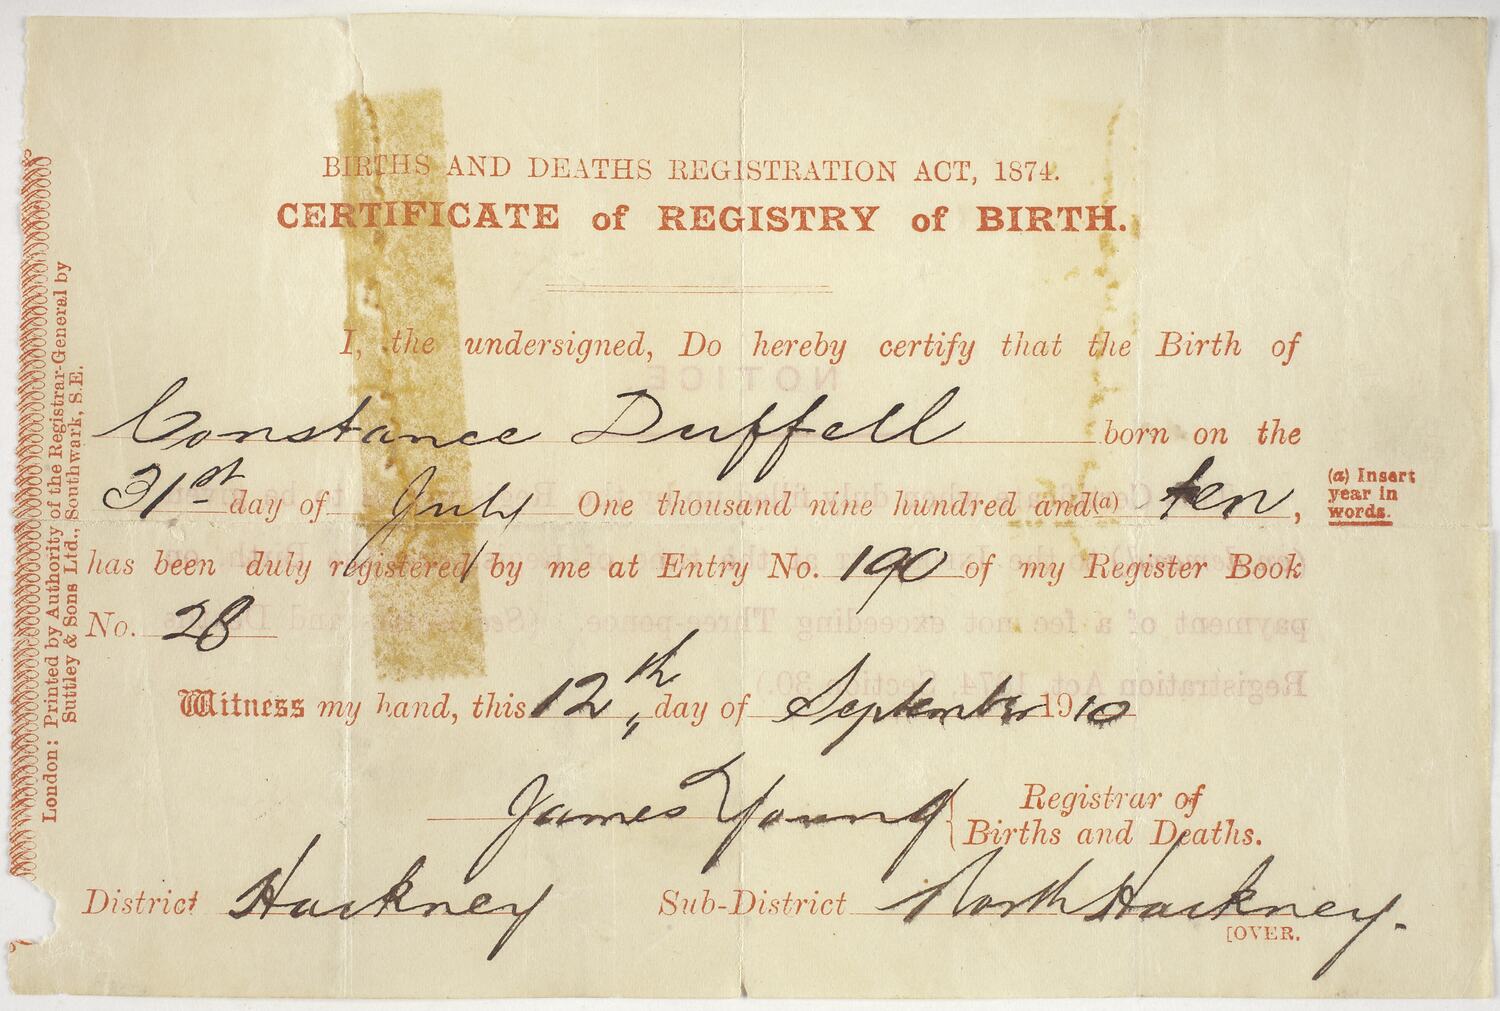 BIRTHS AND DEATHS REGISTRATION ACT, 1874.
CERTIFICATE of REGISTRY of BIRTH.
I, the undersigned, Do hereby certify that the Birth of
Constance Duffell born on the
31st day of July One thousand nine hundred and(a) ten,
(a) Insert
year in
words.
has been duly registered by me at Entry No. 190 of my Register Book
No. 28
Witness my hand, this 12th day of September 1910
James Young Registrar of
Births and Deaths.
District Hackney Sub-District North Hackney.
[OVER.
London: Printed by Authority of the Registrar-General by
Suttley & Sons Ltd., Southwark, S.E.
NOTICE
payment of a fee not exceeding Three-pence. (See
Registration Act, 1874, Section 30.)